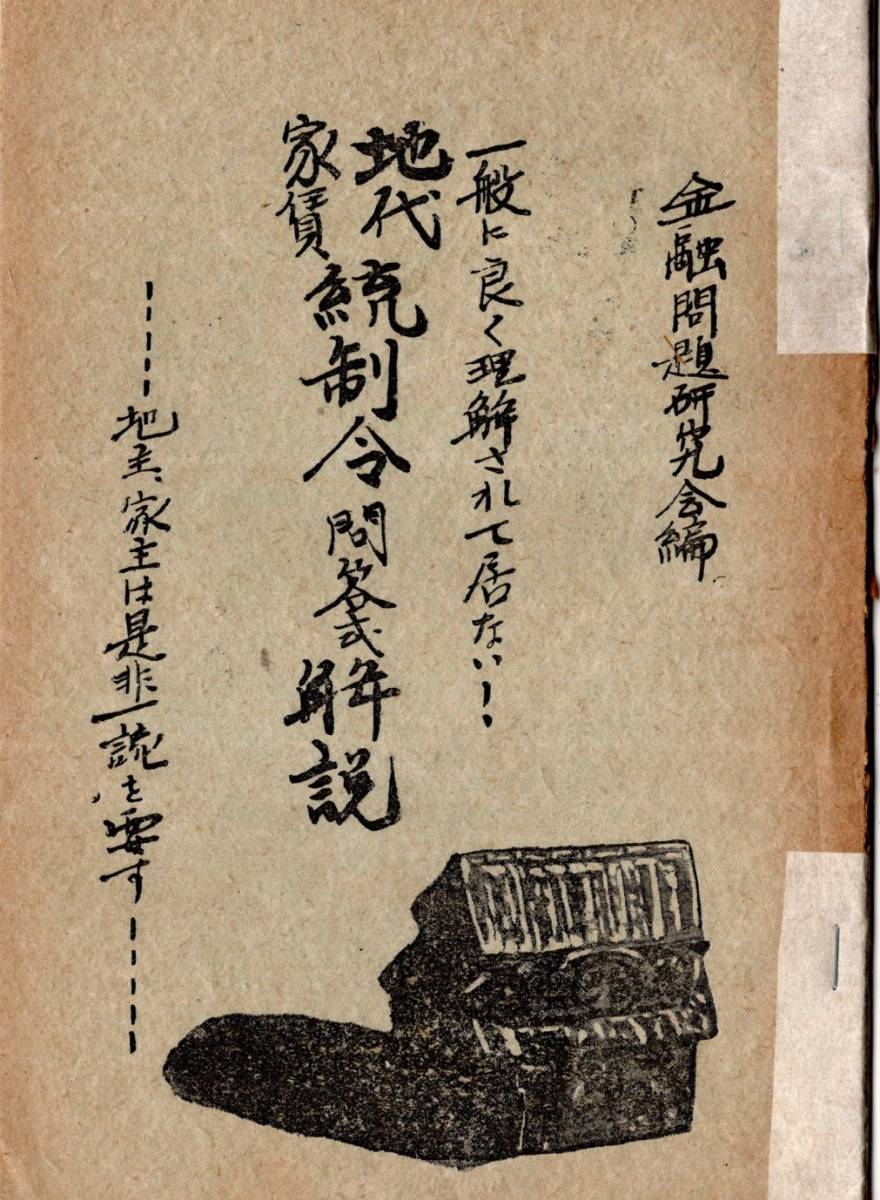 金融問題研究会編
一般に良く理解されて居ない！
地代
家賃
統制令問答式解説
地主、家主は是非一読を要す